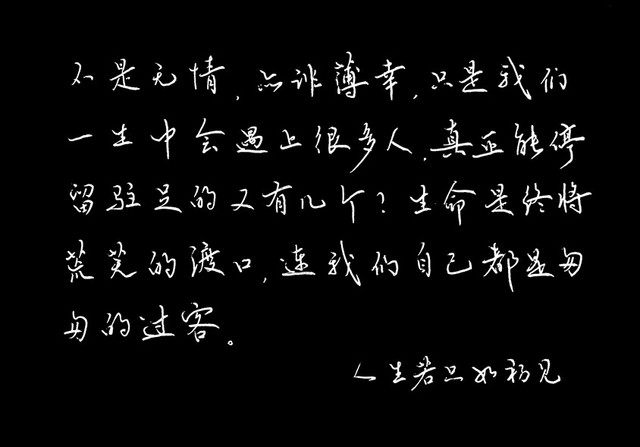 不是无情,亦非薄幸,只是我们
一生中会遇上很多人,真正能停
留驻足的又有几个?生命是终将
荒芜的渡口,连我们自己都是匆
匆的过客。
人生若只如初见